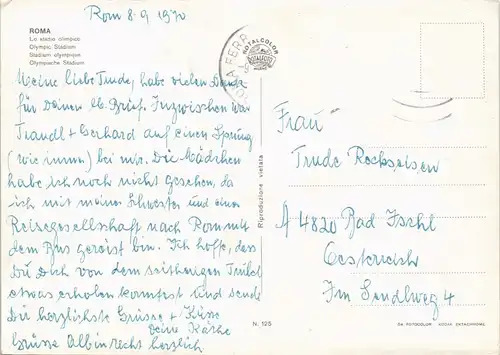 Rom 8.9 1970
ROMA
Lo stadio olimpico
Olympic Stadium
Stadium olympique
Olympische Stadium
Meine liebe Trude, habe vielen Dank
für Deinen lb. Brief. Inzwischen war
Traudl + Gerhard auf einen Sprung
(wie immer) bei mir. Die Mädchen
habe ich noch nicht gesehen, da
ich mit meiner Schwester und einer
Reisegesellschaft nach Rom mit
dem Bus gereist bin. Ich hoffe, dass
Du Dich von dem seitherigen
etwas erholen konntest und sende
Dir herzlichste Grüsse + Küsse
Deine Käthe
Grüsse Albin recht herzlich
FERR
ROTALCOLOR
ROTALFOTO
MILANO
Riproduzione vietata
N. 125
Frau
Trude
A 4820 Bad Ischl
Oesterreich
Im Sendlweg 4
DA FOTOCOLOR KODAK EKTACHROME